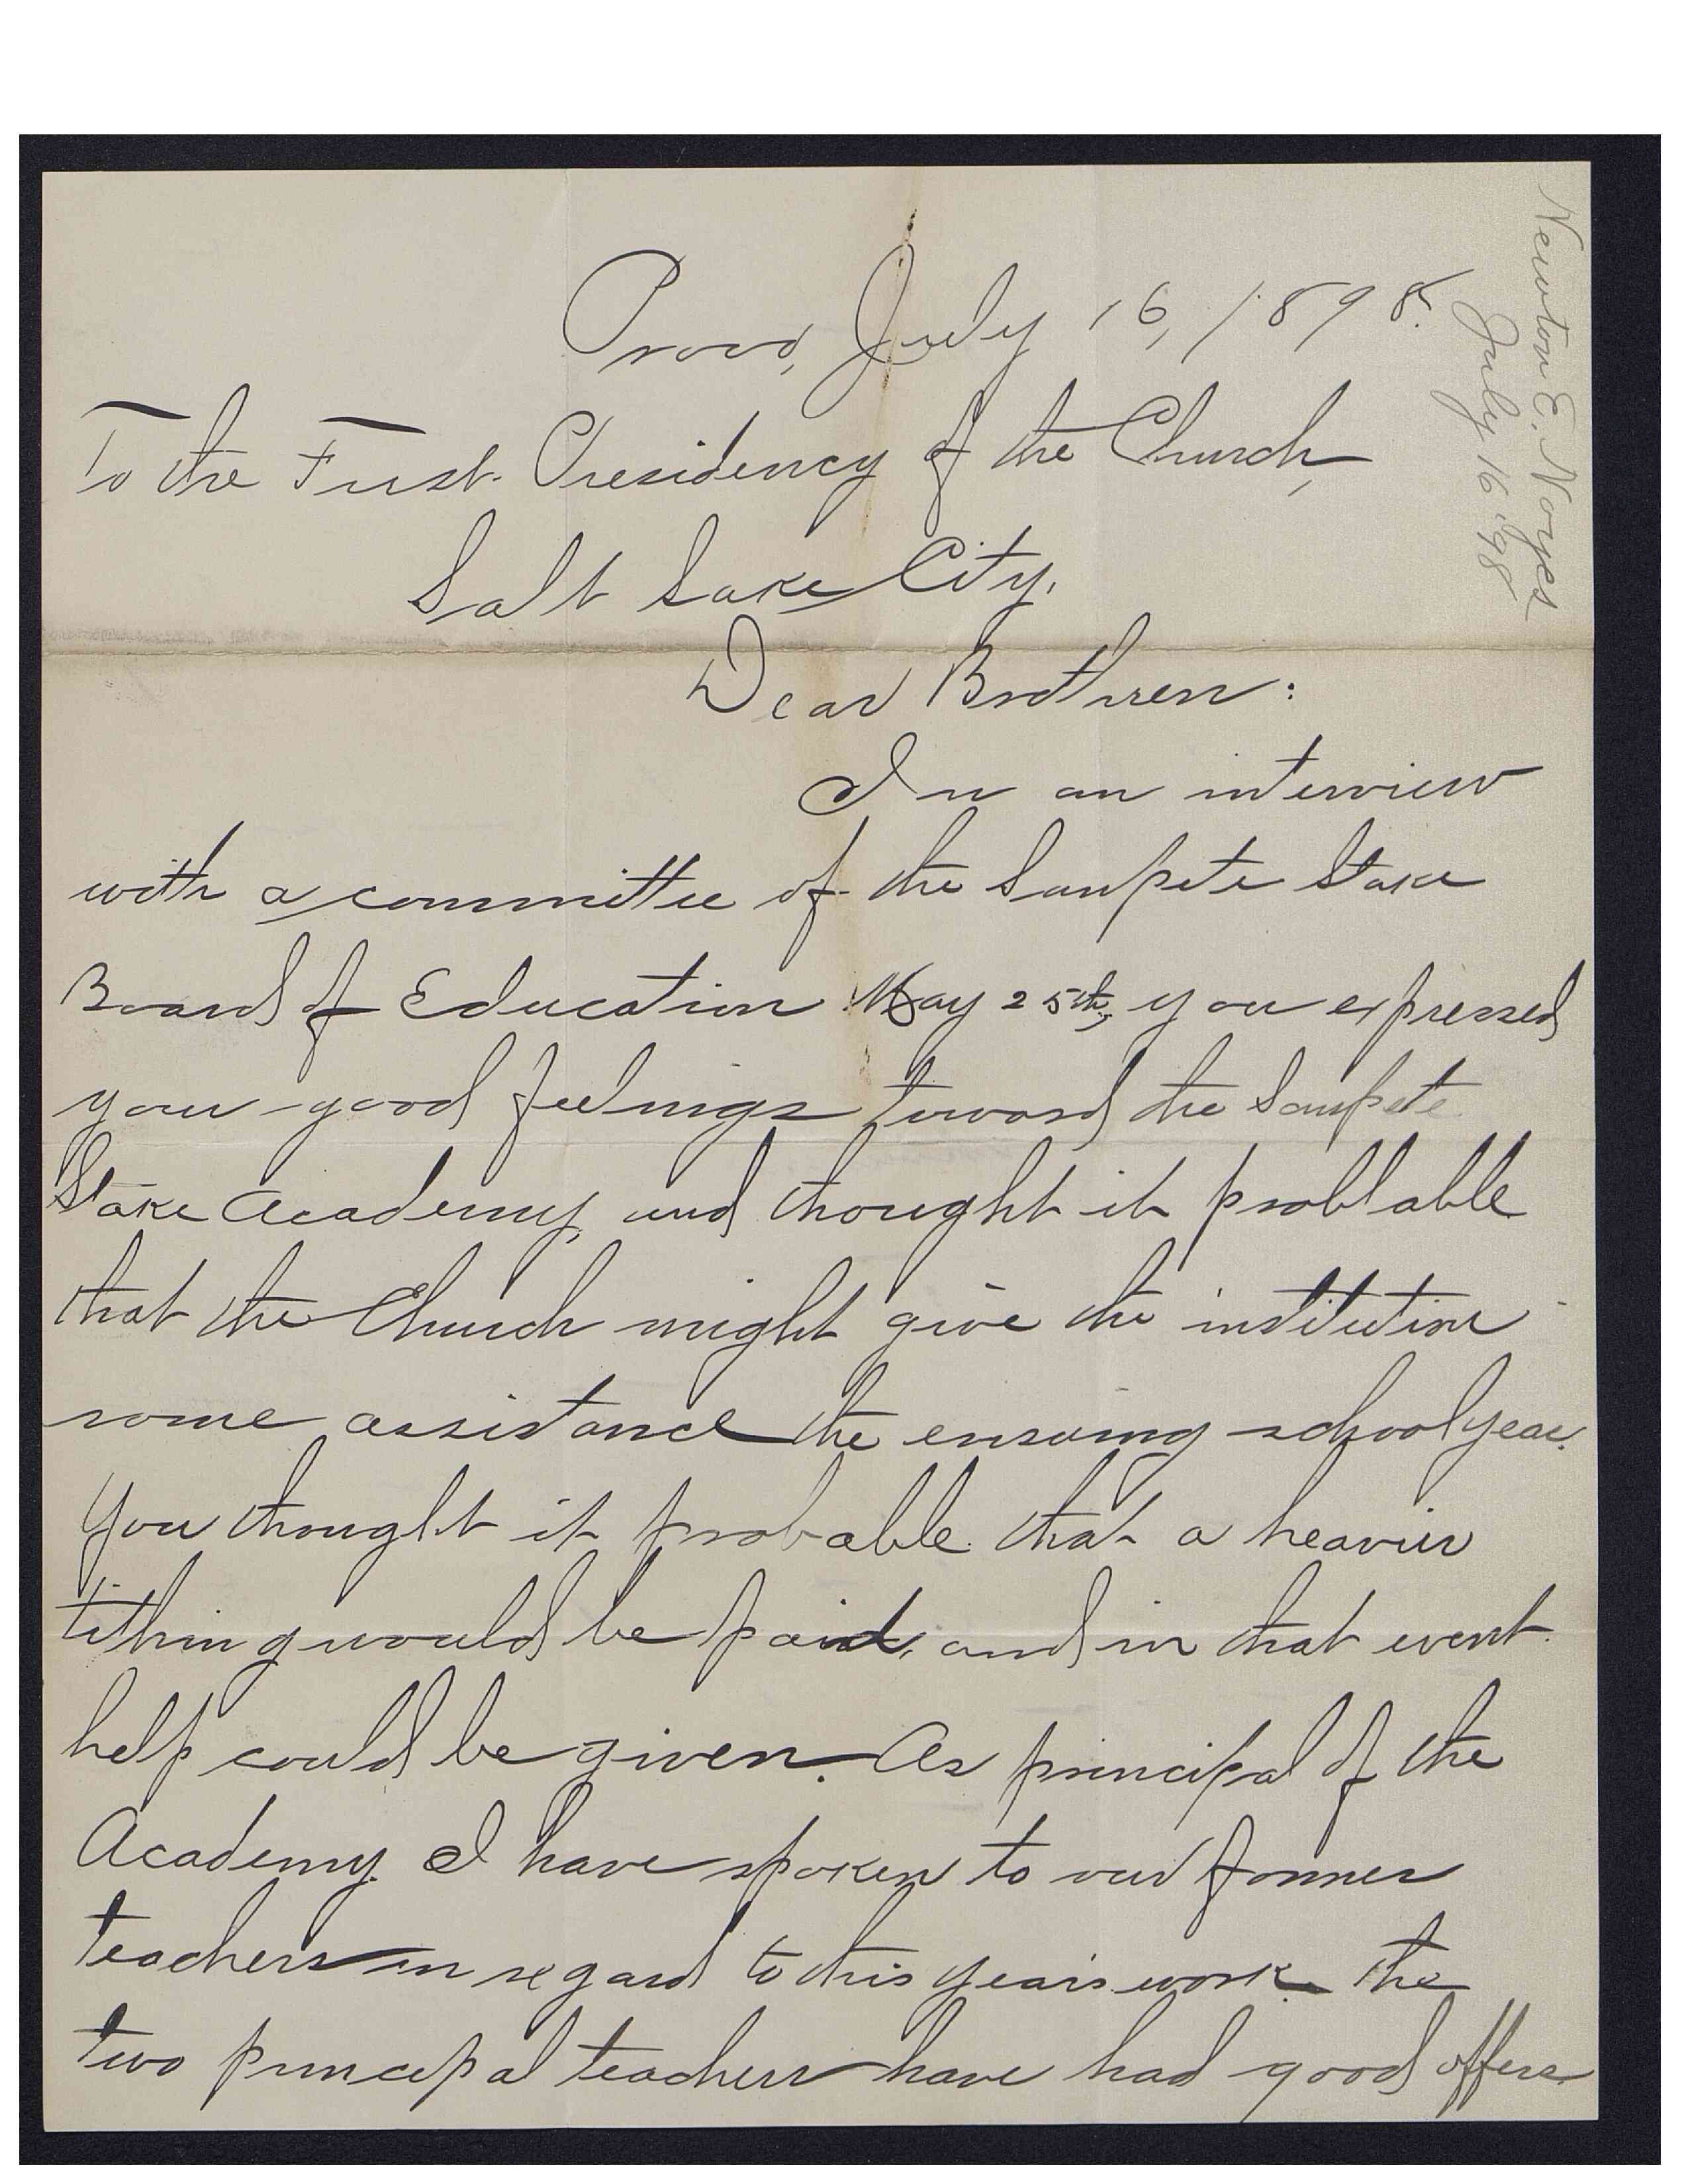 Provo, July 16, 1898.
To the First Presidency of the Church,
Salt Lake City.
Dear Brethren:
In an interview
with a committee of the Sanpete Stake
Board of Education May 25th, you expressed
your good feelings toward the Sanpete
Stake Academy, and thought it problable
that the Church might give the institution
some assistance the ensuing school year.
You thought it probable that a heavier
tithing would be paid, and in that event
help could be given. As principal of the
Academy I have spoken to our former
teachers in regard to this year's work. The
two principal teachers have had good offers
Newton E. Noyes
July 16 '98